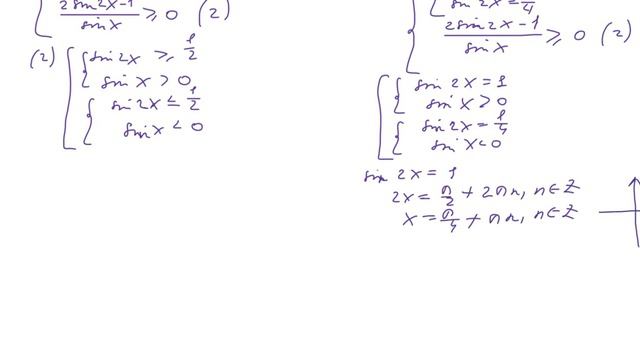 2sin2x-1/sinx ≥ 0 (2)
(2) sin2x ≥ 1/2
sinx > 0
sin2x ≤ 1/2
sinx < 0
sin2x = 1/4
2sin2x-1/sinx ≥ 0 (2)
sin2x = 1
sinx > 0
sin2x = 1/4
sinx < 0
sin 2x = 1
2x = π/2 + 2πn, n∈Z
x = π/4 + πn, n∈Z